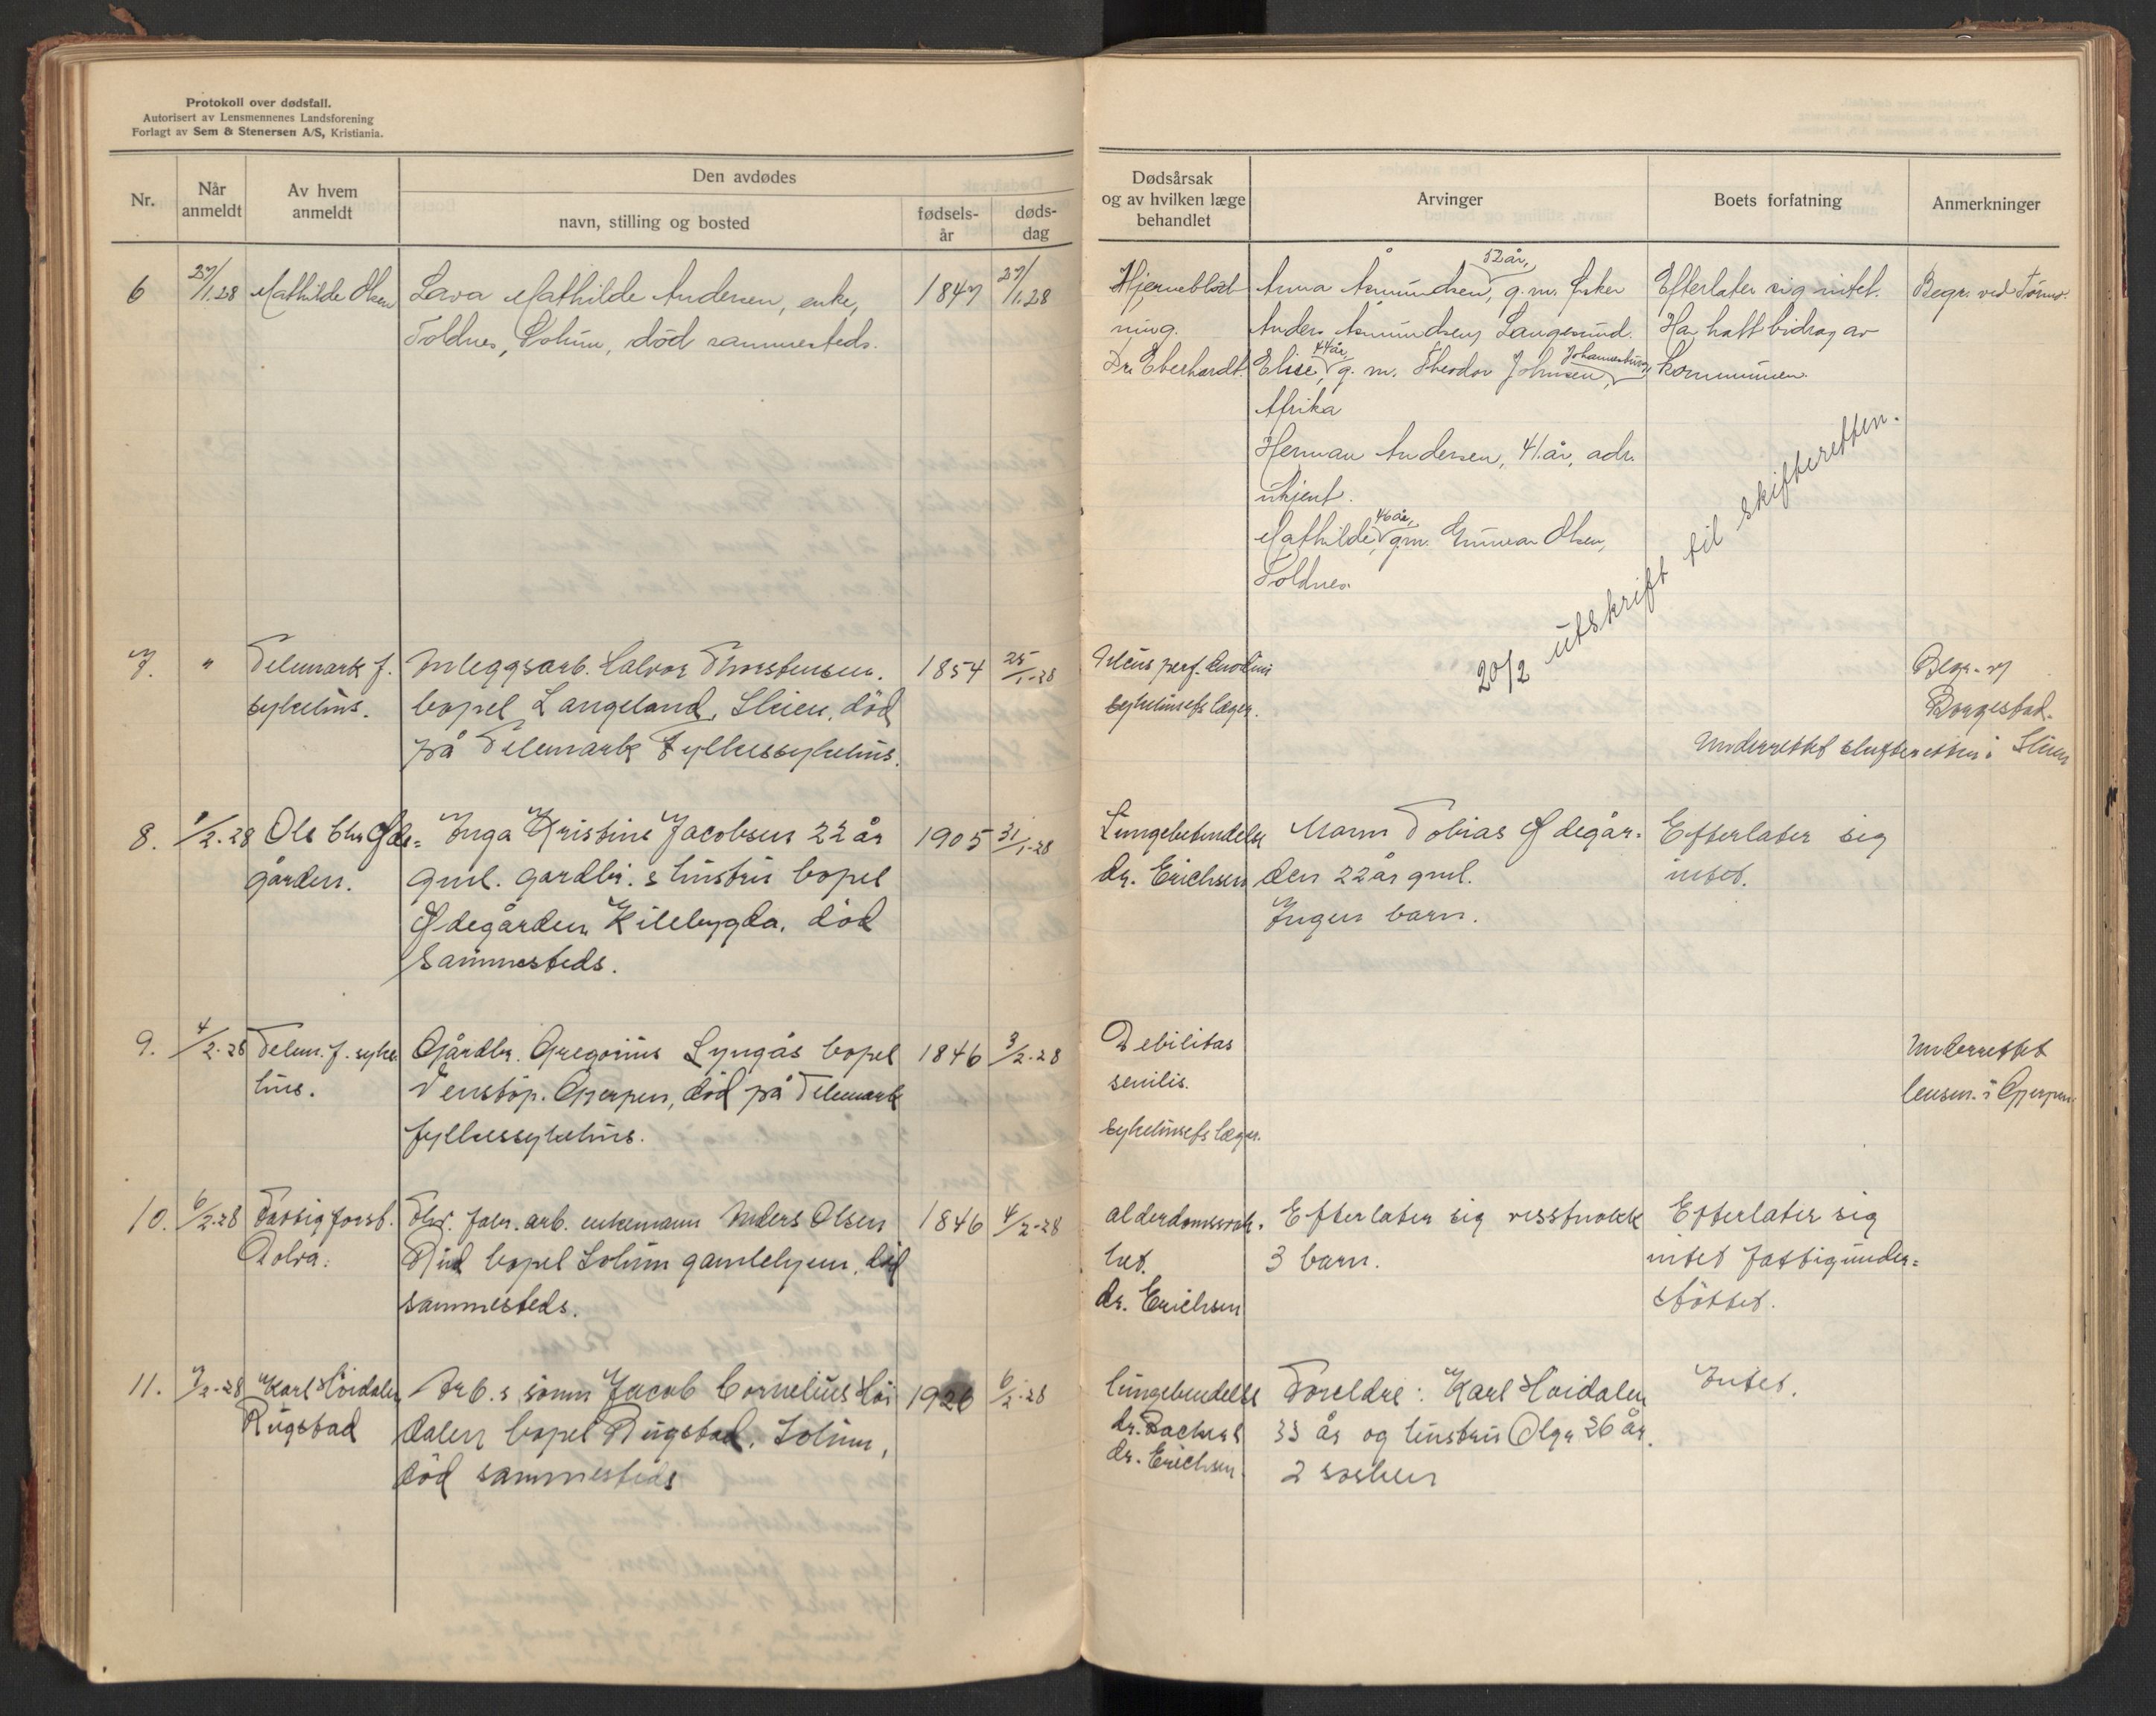 Protokoll over dødsfall.
Autorisert av Lensmennenes Landsforening
Forlagt av Sem & Stenersen A/S, Kristiania.
Nr.
Når anmeldt
Av hvem anmeldt
Den avdødes
navn, stilling og bosted
fødsels-år
døds-dag
Dødsårsak og av hvilken læge behandlet
Arvinger
Boets forfatning
Anmerkninger
6
27/1.28
Mathilde Olsen
Lava Mathilde Andersen, enke,
Toldnes, Solum, død sammesteds.
1847
27/1.28
Hjerneblød
ning.
Dr. Eberhardt.
52 år,
Anna Åmundsen, g.m.
Anders Åmundsen, Langesund.
44 år, Johannesburg
Elise, g. m. Theodor Johnsen,
Afrika
Herman Andersen, 41 år, adr.
ukjent.
46 år,
Mathilde, g.m. Gunnar Olsen,
Toldnes.
Efterlater sig intet.
Har hatt bidrag av
kommunen.
Begr. ved
20/2 utskrift til skifteretten.
7.
"
Telemark f.
sykehus.
Anleggsarb. Halvor Thorstensen.
bopel Langeland, Skien, død
på Telemark Fylkessykehus.
1854
25/1-28
Ulcus perf.
sykehusets læger.
Begr. v
Borgestad.
Underrettet skifteretten i Skien
8.
1/2-28
Ole Chr Øde=
gården.
Inga Kristine Jacobsen 22 år
gml. gardbr. s hustru bopel
Ødegården Kilebygda. død
sammesteds.
1905
31/1-28
Lungebetendelse
dr. Erichsen
Mann Tobias Ødegår-
den 22 år gml.
Ingen barn.
Efterlater sig
intet.
9.
4/2-28
Telem. f. syke
hus.
Gårdbr. Gregorius Lyngås bopel
Venstøp. Gjerpen, død på Telemark
fylkessykehus.
1846
3/2-28
Debilitas
senilis.
sykehusets læger.
Underrettet
lensm. i Gjerpen
10.
6/2-28
Fattigforst.
Rolva.
Fhv. fabr. arb. enkemann Anders Olsen
Rud bopel Solum gamlehjem, død
sammesteds.
1846
4/2-28
alderdomssvak-
het.
dr. Erichsen
Efterlater sig visstnokk
3 barn.
Efterlater sig
intet fattigunder=
støttet.
11.
7/2-28
Karl Høidalen
Rugstad
Arb. s sønn Jacob Cornelius Høi
dalen bopel Rugstad, Solum,
død sammesteds
1926
6/2-28
lungebendelse
dr. Backers
dr. Erichsen.
Foreldre: Karl Høidalen
33 år og hustru Olga 26 år.
2 søsken
Intet.